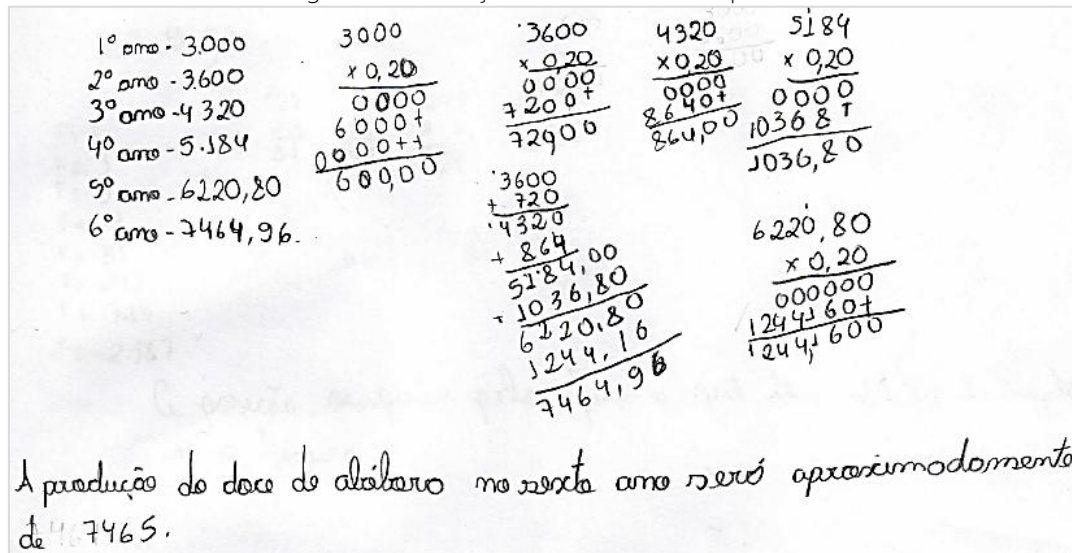 1º ano - 3.000
2º ano - 3.600
3º ano - 4320
4º ano - 5.184
5º ano - 6220,80
6º ano - 7464,96.
3000
x 0,20
0000
6000+
0000++
600,00
3600
x 0,20
0000
7200+
72000
4320
x 0,20
0000
8640+
864,00
5184
x 0,20
0000
10368+
1036,80
3600
+ 720
4320
+ 864
5184,00
+ 1036,80
6220,80
1244,16
7464,96
6220,80
x 0,20
000000
1244160+
1244,1600
A produção do doce de abóbora no sexto ano será aproximadamente
de 7465.